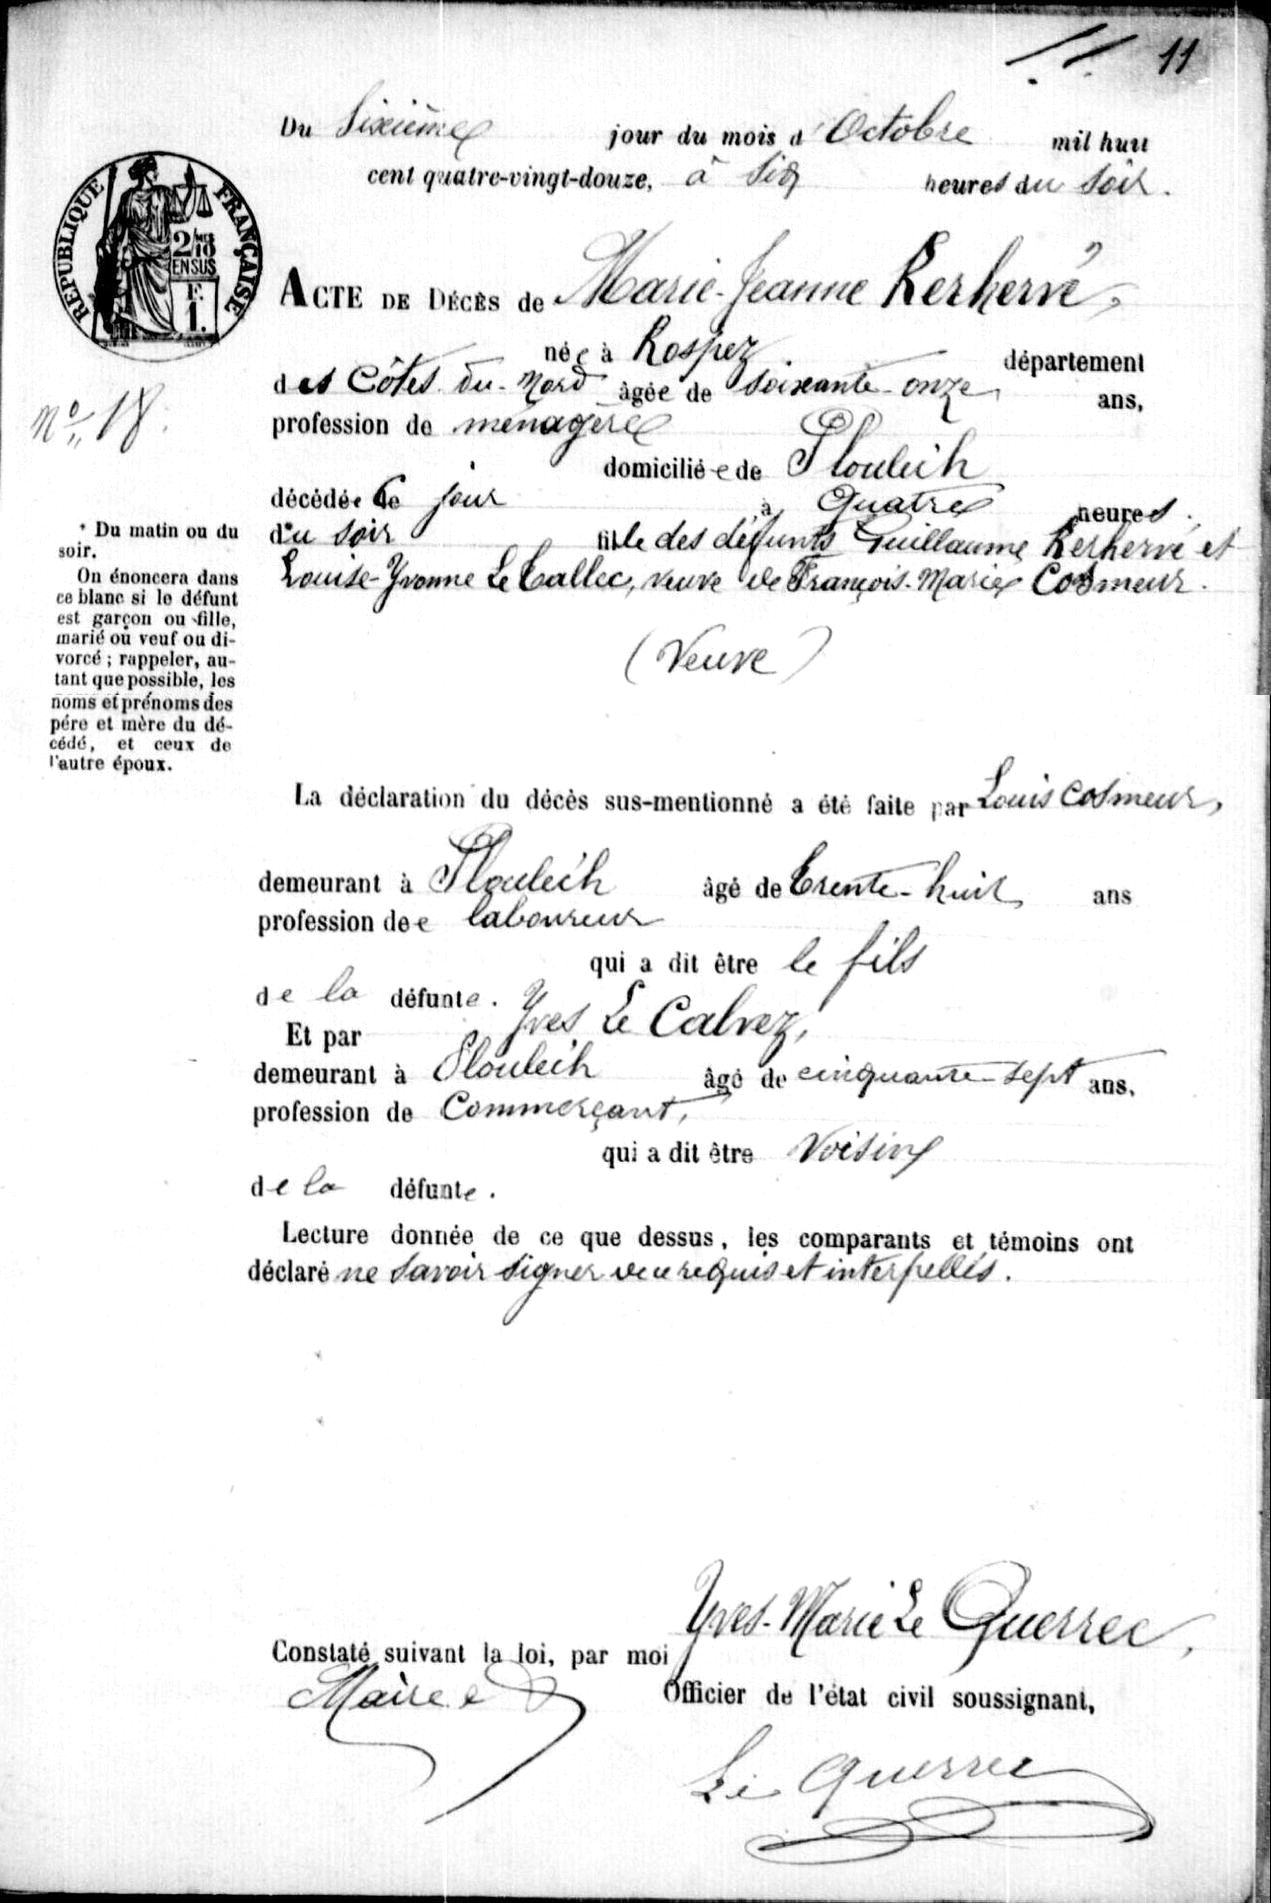 11
Du Sixième jour du mois d'Octobre mil huit
cent quatre-vingt-douze, à Six heures du Soir.
RÉPUBLIQUE FRANÇAISE
2/10 MES
EN SUS
F.
1.
ACTE DE DÉCÈS de Marie-Jeanne Kerhervé,
née à Rospez département
des Côtes-du-Nord âgée de soixante-onze ans,
N° 18.
profession de ménagère
domiciliée de Ploulech
décédée ce jour à quatre heures
du soir fille des défunts Guillaume Kerhervé et
Louise-Yvonne Le Callec, veuve de François-Marie Cosmeur.
(Veuve)
* Du matin ou du
soir.
On énoncera dans
ce blanc si le défunt
est garçon ou fille,
marié où veuf ou di-
vorcé ; rappeler, au-
tant que possible, les
noms et prénoms des
pére et mère du dé-
cédé, et ceux de
l'autre époux.
La déclaration du décès sus-mentionné a été faite par Louis Cosmeur,
demeurant à Ploulech âgé de trente-huit ans
profession de laboureur
qui a dit être le fils
de la défunte.
Et par Yves Le Calvez,
demeurant à Ploulech âgé de cinquante-sept ans,
profession de Commerçant,
qui a dit être Voisin
de la défunte.
Lecture donnée de ce que dessus, les comparants et témoins ont
déclaré ne savoir signer de ce requis et interpellés.
Constaté suivant la loi, par moi Yves-Marie Le Querrec,
Maire Officier de l'état civil soussignant,
Le Querrec